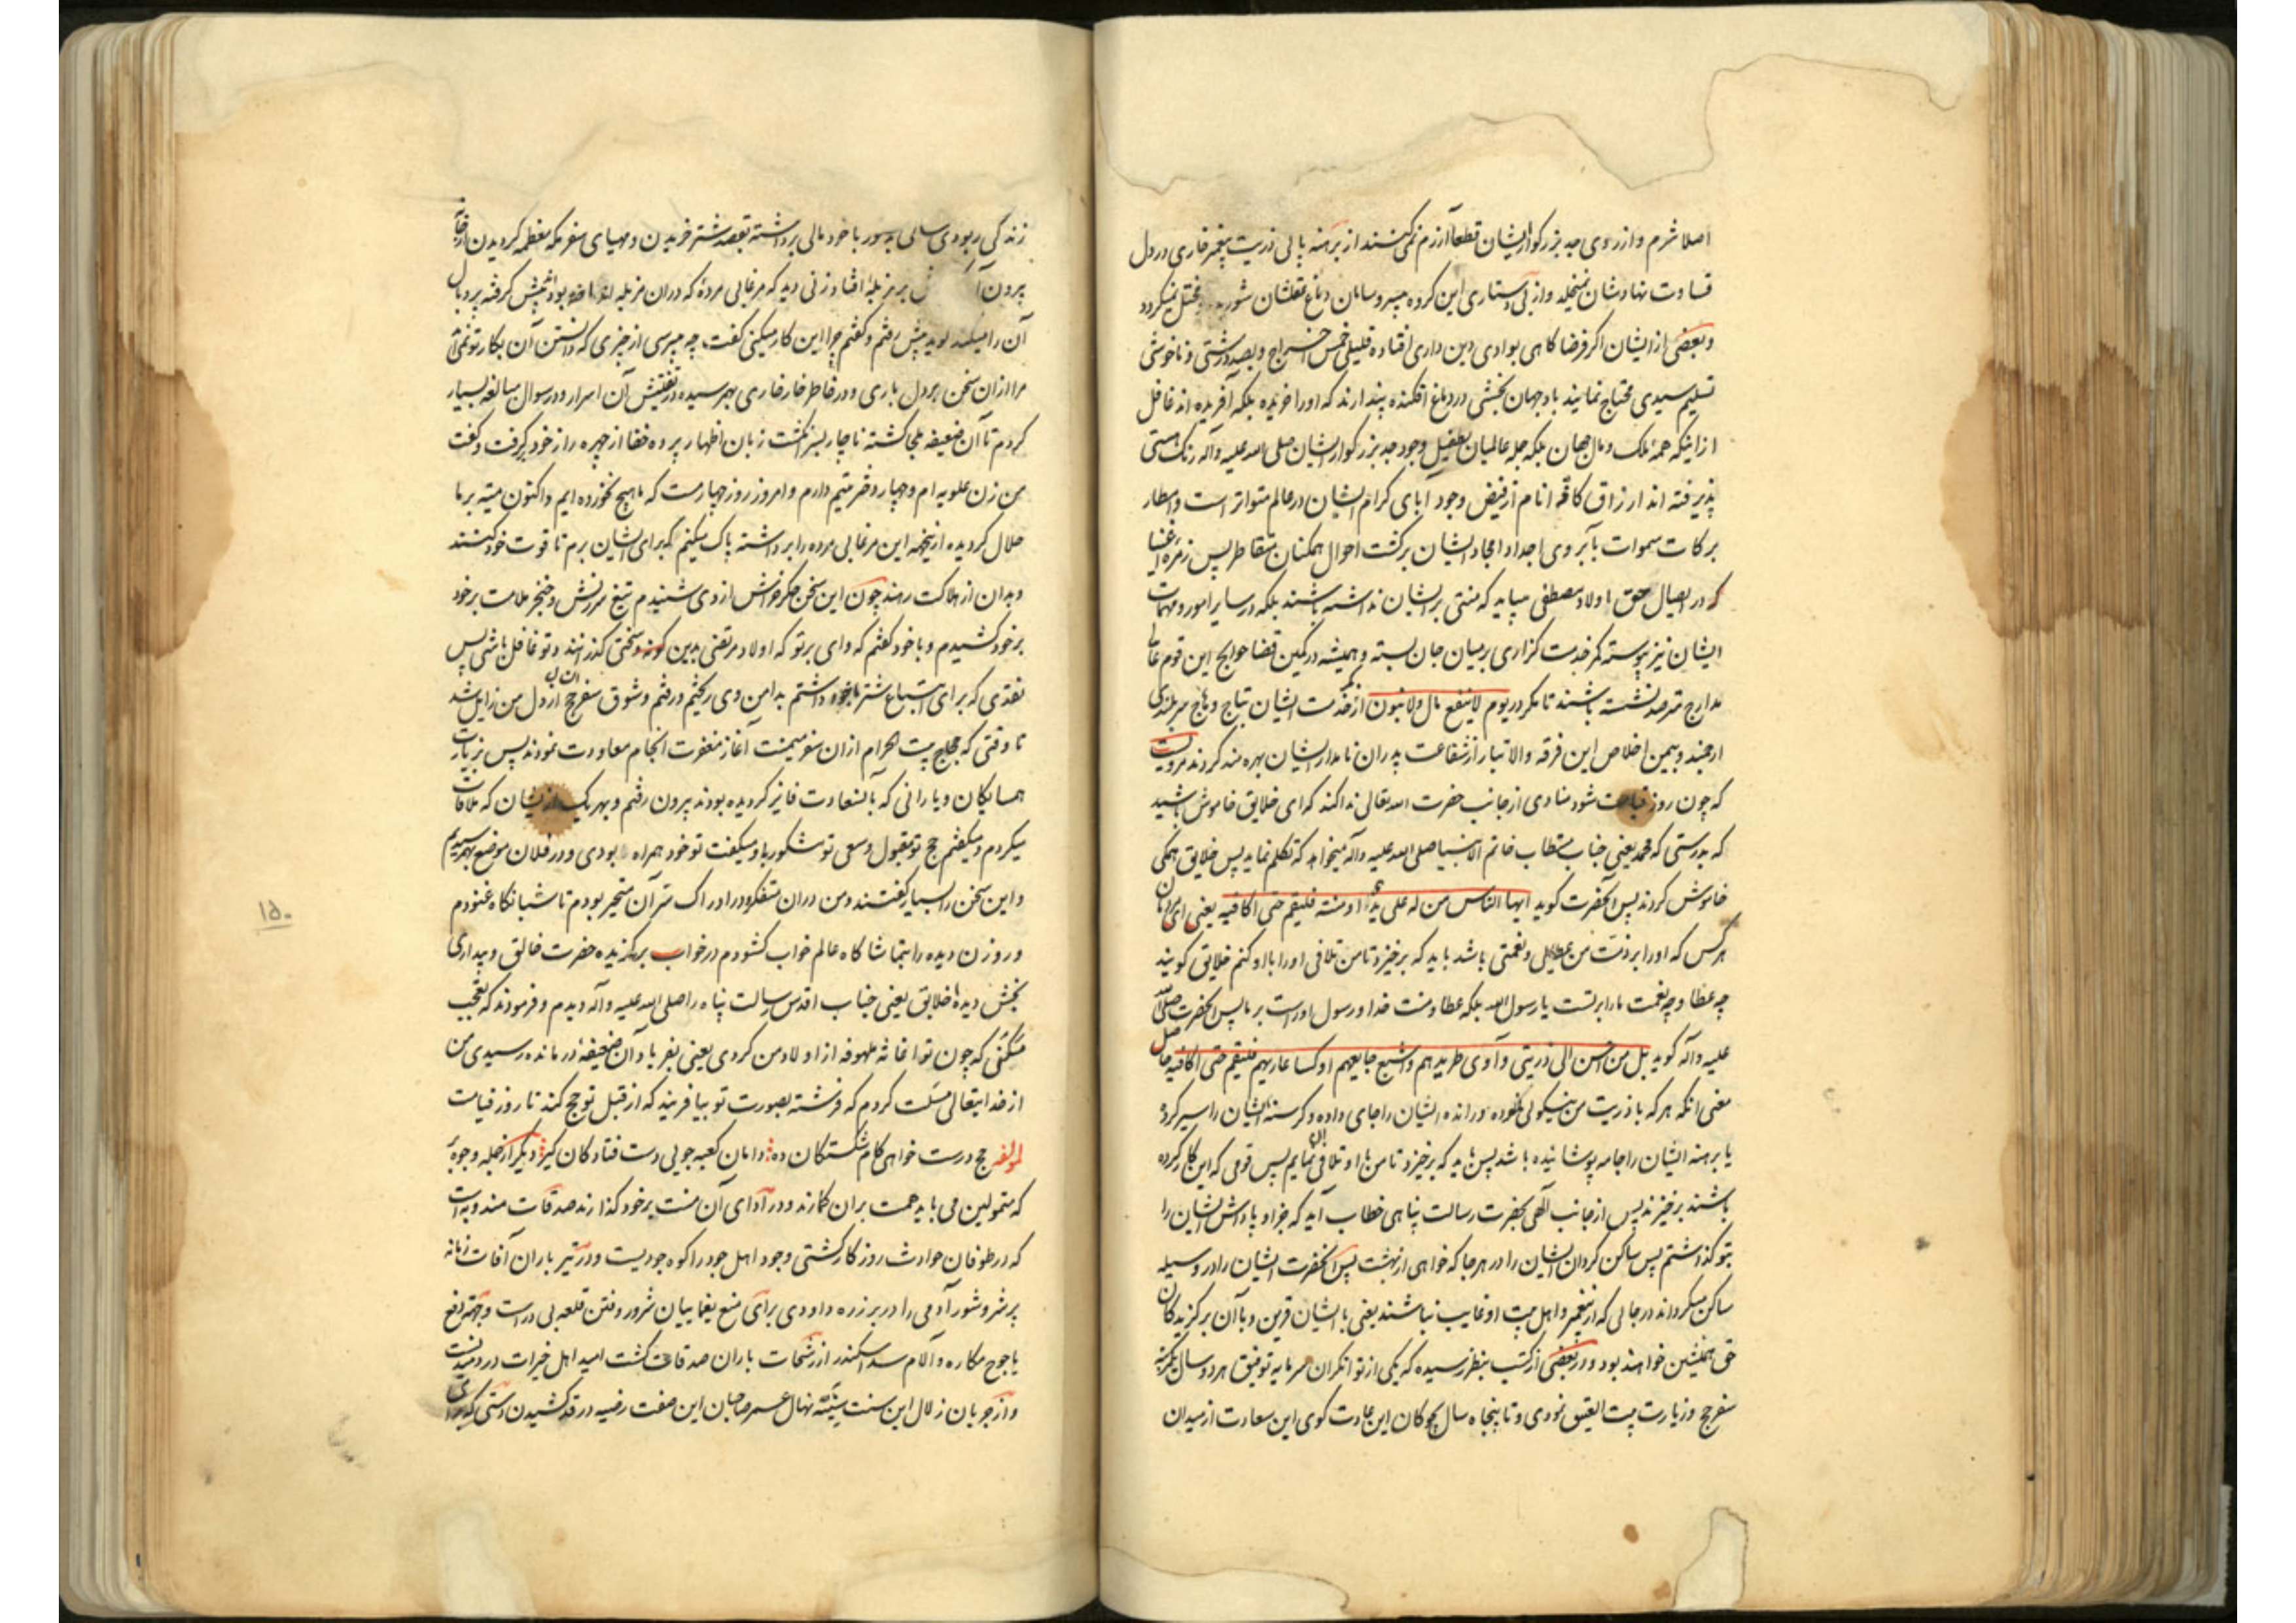 اصلا شرم و از روی جد بزرگوار ایشان قطعا آزرم نمی‌کنند از برهنه پایی ذریت پیغمبر خاری در دل
قساوت نهادشان نمیخلد و از بی دستاری این گروه بیسر و سامان دماغ عقلشان مختل نمیگردد
و بعضی از ایشان اگر فرضا گاهی بوادی دین داری افتاده قلیلی خمس اخراج و بصد درشتی و ناخوشی
تسلیم سیدی محتاج نمایند باد جهان بخشی در دماغ افکنده پندارند که او را خریده بلکه آفریده اند غافل
از اینکه همه ملک و مال جهان بلکه جمله عالمیان بطفیل وجود جد بزرگوار ایشان صلی الله علیه وآله رنگ هستی
پذیرفته اند ارزاق کافه انام از فیض وجود آبای کرام ایشان در عالم متواتر است و امطار
برکات سموات بآبروی اجداد امجاد ایشان برکشت احوال همکنان متقاطر پس زمره اغنیا
که در ایصال حق اولاد مصطفی میباید که منتی بر ایشان نداشته باشند بلکه در سایر امور و مهمات
ایشان نیز پیوسته کمر خدمت گزاری بر میان جان بسته و همیشه در کمین قضا حوایج این قوم عالی
مدارج مترصد نشسته باشند تا مگر در یوم لا ینفع مال ولا بنون از خدمت ایشان بتاج وهاج سربلندی
ارجمند و بیمن اخلاص این فرقه والا تبار از شفاعت پدران نامدار ایشان بهره مند گردند مرویست
که چون روز قیامت شود منادی از جانب حضرت الله تعالی ندا کند که ای خلایق خاموش باشید
که بدرستی که محمد یعنی جناب مستطاب خاتم الانبیا صلی الله علیه وآله میخواهد که تکلم نماید پس خلایق همگی
خاموش گردند پس آنحضرت گوید ایها الناس من له علی ید او منة فلیقم حتی اکافیه یعنی ای مردمان
هر کس که او را بر ذمت من عطایی و نعمتی باشد باید که برخیزد تا من تلافی او را با او کنم خلایق گویند
چه عطا و چه نعمت ما را بر تست یا رسول الله بلکه عطا و منت خدا و رسول او راست بر ما پس آنحضرت صلی الله
علیه وآله گوید بل من احسن الی ذریتی و آوی طریدهم و اشبع جایعهم او کسا عاریهم فلیقم حتی اکافیه حاصل
معنی آنکه هر که با ذریت من نیکوئی نموده و رانده ایشان را جای داده و گرسنه ایشان را سیر کرده
یا برهنه ایشان را جامه پوشانیده باشد پس باید که برخیزد تا من با او تلافی آن نمایم پس قومی که این کار کرده
باشند برخیزند پس از جانب الهی بحضرت رسالت پناهی خطاب آید که جزا و پاداش ایشان را
بتو گذاشتم پس ساکن گردان ایشان را در هر جا که خواهی از بهشت پس آنحضرت ایشان را در وسیله
ساکن میگرداند در جایی که از پیغمبر و اهل بیت او غایب نباشند یعنی با ایشان قرین و با آن برگزیدگان
حق همنشین خواهند بود و در بعضی از کتب بنظر رسیده که یکی از توانگران سرمایه توفیق هر دو سال یکمرتبه
سفر حج و زیارت بیت العتیق نمودی و تا پنجاه سال بچوگان این عادت گوی این سعادت از میدان
زندگی ربودی سالی بدستور با خود مالی برداشته بقصد شتر خریدن و مهیای سفر مکه معظمه گردیدن از خانه
بیرون آمد بر مزبله افتاد زنی دید که مرغابی مرده که در آن مزبله افتاده بود پیش گرفته پر و بال
آن را میکند گوید پیش رفتم و گفتم چرا این کار میکنی گفت چه میپرسی از چیزی که دانستن آن بکار تو نمی‌آید
مرا از آن سخن بر دل باری و در خاطر خارخاری بهم رسیده در تفتیش آن اسرار و در سوال مبالغه بسیار
کردم تا آن ضعیفه ملجا گشته ناچار بسر انگشت زبان اظهار پرده خفا از چهره راز خود برگرفت و گفت
من زن علویه ام و چهار دختر یتیم دارم و امروز روز چهارمست که ما هیچ نخورده ایم و اکنون میته بر ما
حلال گردیده از اینجهة این مرغابی مرده را برداشته پاک میکنم که برای ایشان برم تا قوت خود کنند
و بدان از هلاکت رهند چون این سخن جگر خراش از وی شنیدم تیغ سرزنش و خنجر ملامت بر خود
بر خود کشیدم و با خود گفتم که وای بر تو که اولاد مرتضی بدین گونه سختی گذرانند و تو غافل باشی پس
نقدی که برای ابتیاع شتر با خود داشتم بدامن وی ریختم و رفتم و شوق سفر حج آن سال از دل من زایل شد
تا وقتی که حجاج بیت الحرام از ان سفر میمنت آغاز مغفرت انجام معاودت نمودند پس بزیارت
همسایگان و یارانی که بآن سعادت فایز گردیده بودند بیرون رفتم و بهر یک از ایشان که ملاقات
میکردم و میگفتم حج تو مقبول و سعی تو مشکور باد میگفت تو خود همراه بودی و در فلان موضع بهم رسیدیم
و این سخن را بسیار گفتند و من در آن متفکر و در ادراک سر آن متحیر بودم تا شبانگاه غنودم
و روزن دیده را بتماشاگاه عالم خواب گشودم در خواب برگزیده حضرت خالق و بیداری
بخش دیده خلایق یعنی جناب اقدس رسالت پناه را صلی الله علیه وآله دیدم و فرمودند که تعجب
مکنی که چون تو اغاثه ملهوفه از اولاد من کردی یعنی بفریاد آن ضعیفه درمانده رسیدی من
از خدایتعالی مسئلت کردم که فرشته بصورت تو بیافریند که از قبل تو حج کند تا روز قیامت
لمولفه حج درست خواهی کام شکستگان ده دامان کعبه جویی دست فتادگان گیر دیگر از جمله وجوه
که متمولین می باید همت بران گمارند و در ادای آن منت بر خود گذارند صدقات مندوبه است
که در طوفان حوادث روزگار کشتی وجود اهل جود را کوه جودیست و در تیر باران آفات زمانه
پر شر و شور آدمی را در بر زره داودی برای منع یغماییان شرور و فتن قلعه بی دراست و جهة دفع
یاجوج مکاره و آلام سد اسکندر از رشحات باران صدقات کشت امید اهل خیرات در دمیدنست
و از جریان زلال این سنت سنیه نهال عمر صاحبان این صفت رضیه در قد کشیدن دستی که برای
۱۵۰